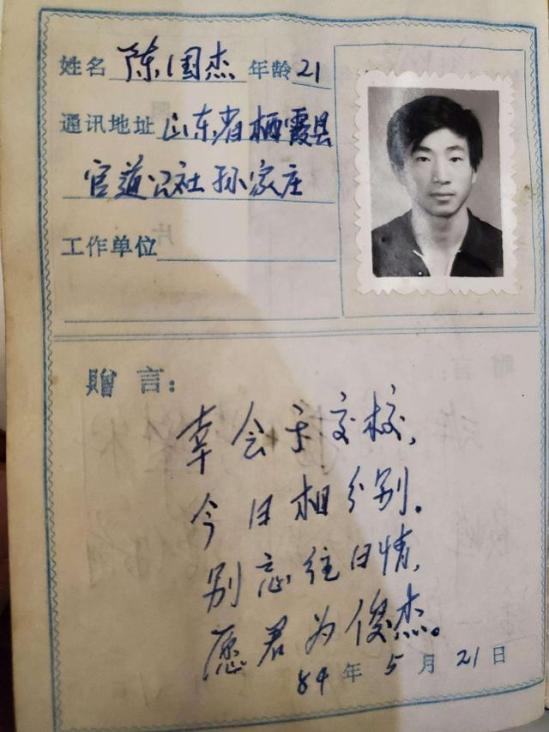 姓名 陈国杰 年龄 21
通讯地址 山东省栖霞县
官道公社孙家庄
工作单位
贈言：
幸会于交校，
今日相分别。
别忘往日情，
愿君为俊杰。
84年5月21日